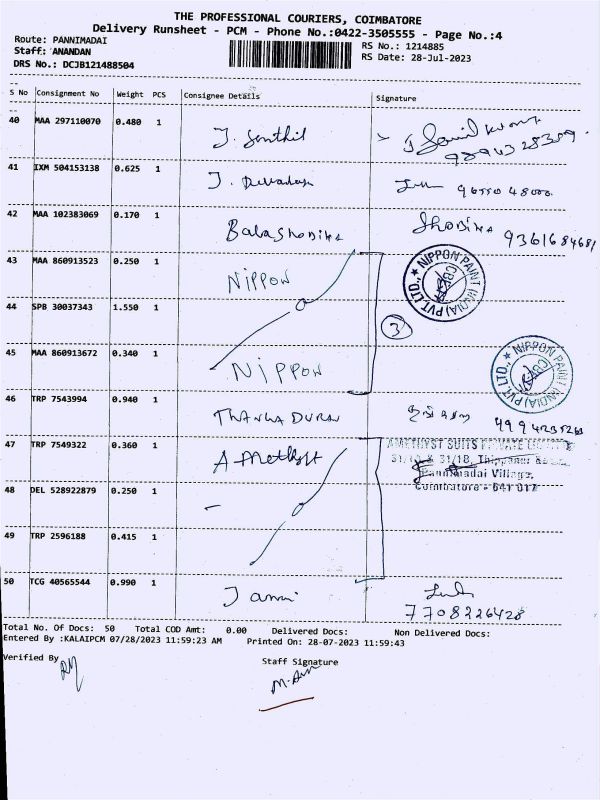 THE PROFESSIONAL COURIERS, COIMBATORE
Delivery Runsheet - PCM - Phone No.:0422-3505555 - Page No.:4
Route: PANNIMADAI
RS No.: 1214885
Staff.: ANANDAN
RS Date: 28-Jul-2023
DRS No.: DCJB121488504
S No Consignment No Weight PCS Consignee Details Signature
40 MAA 297110070 0.480 1 J. Senthil
41 IXM 504153138 0.625 1 J. Devadas
42 MAA 102383069 0.170 1 Balashobika Shobika
43 MAA 860913523 0.250 1 NIPPON
NIPPON PAINT (INDIA) PVT. LTD., ★
44 SPB 30037343 1.550 1
3
45 MAA 860913672 0.340 1 NIPPON
NIPPON PAINT (INDIA) PVT. LTD., ★
46 TRP 7543994 0.940 1 THANGADURAI
47 TRP 7549322 0.360 1 Amethyst
AMETHYST SUITS PRIVATE LIMITED
Pannimadai Village,
Coimbatore - 641 017
48 DEL 528922879 0.250 1
49 TRP 2596188 0.415 1
50 TCG 40565544 0.990 1
7708226428
Total No. Of Docs: 50 Total COD Amt: 0.00 Delivered Docs: Non Delivered Docs:
Entered By :KALAIPCM 07/28/2023 11:59:23 AM Printed On: 28-07-2023 11:59:43
Verified By
Staff Signature